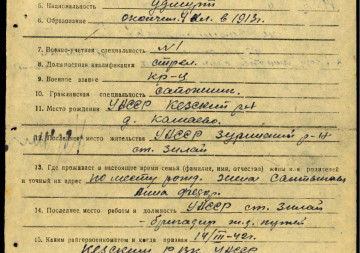 5. Национальность удмурт
6. Образование окончил 4 кл. в 1913 г.
7. Военно-учетная специальность №1
8. Должностная квалификация стрел.
9. Военное звание кр-ц
10. Гражданская специальность сапожник.
11. Место рождения УАССР Кезский р-н
д.
12. Последнее место жительства УАССР р-н
ст.
13. Где проживает в настоящее время семья (фамилия, имя, отчество) жены или родителей
и точный их адрес по месту рожд. жена
Анна Федор.
14. Последнее место работы и должность УАССР ст.
бригадир ж.д. путей
15. Каким райгорвоенкоматом и когда призван 14/III-42г.
Кезским РВК УАССР